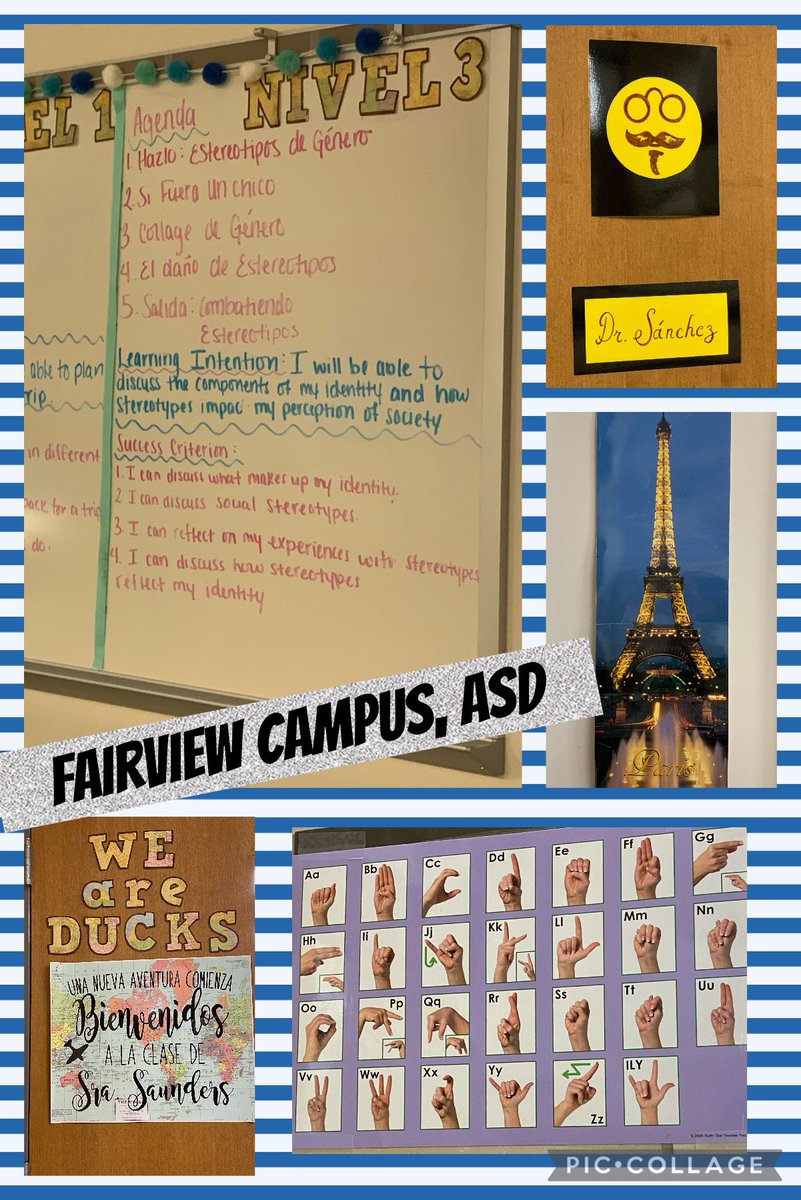 EL 1
NIVEL 3
Agenda
1. Hazlo: Estereotipos de Género
2. Si Fuera un chico
3. Collage de Género
4. El daño de Estereotipos
5. Salida: Combatiendo
Estereotipos
Learning Intention: I will be able to
discuss the components of my identity and how
stereotypes impac my perception of society
Success Criterion:
1. I can discuss what makes up my identity.
2 I can discuss social stereotypes.
3. I can reflect on my experiences with stereotypes
4. I can discuss how stereotypes
reflect my identity
able to plan
rip
in different
for a trip
do.
Dr. Sánchez
Paris
FAIRVIEW CAMPUS, ASD
WE
are
DUCKS
UNA NUEVA AVENTURA COMIENZA
Bienvenidos
A LA CLASE DE
Sra. Saunders
Aa Bb Cc Dd Ee Ff Gg
Hh Ii Jj Kk Ll Mm Nn
Oo Pp Qq Rr Ss Tt Uu
Vv Ww Xx Yy Zz ILY
PIC•COLLAGE